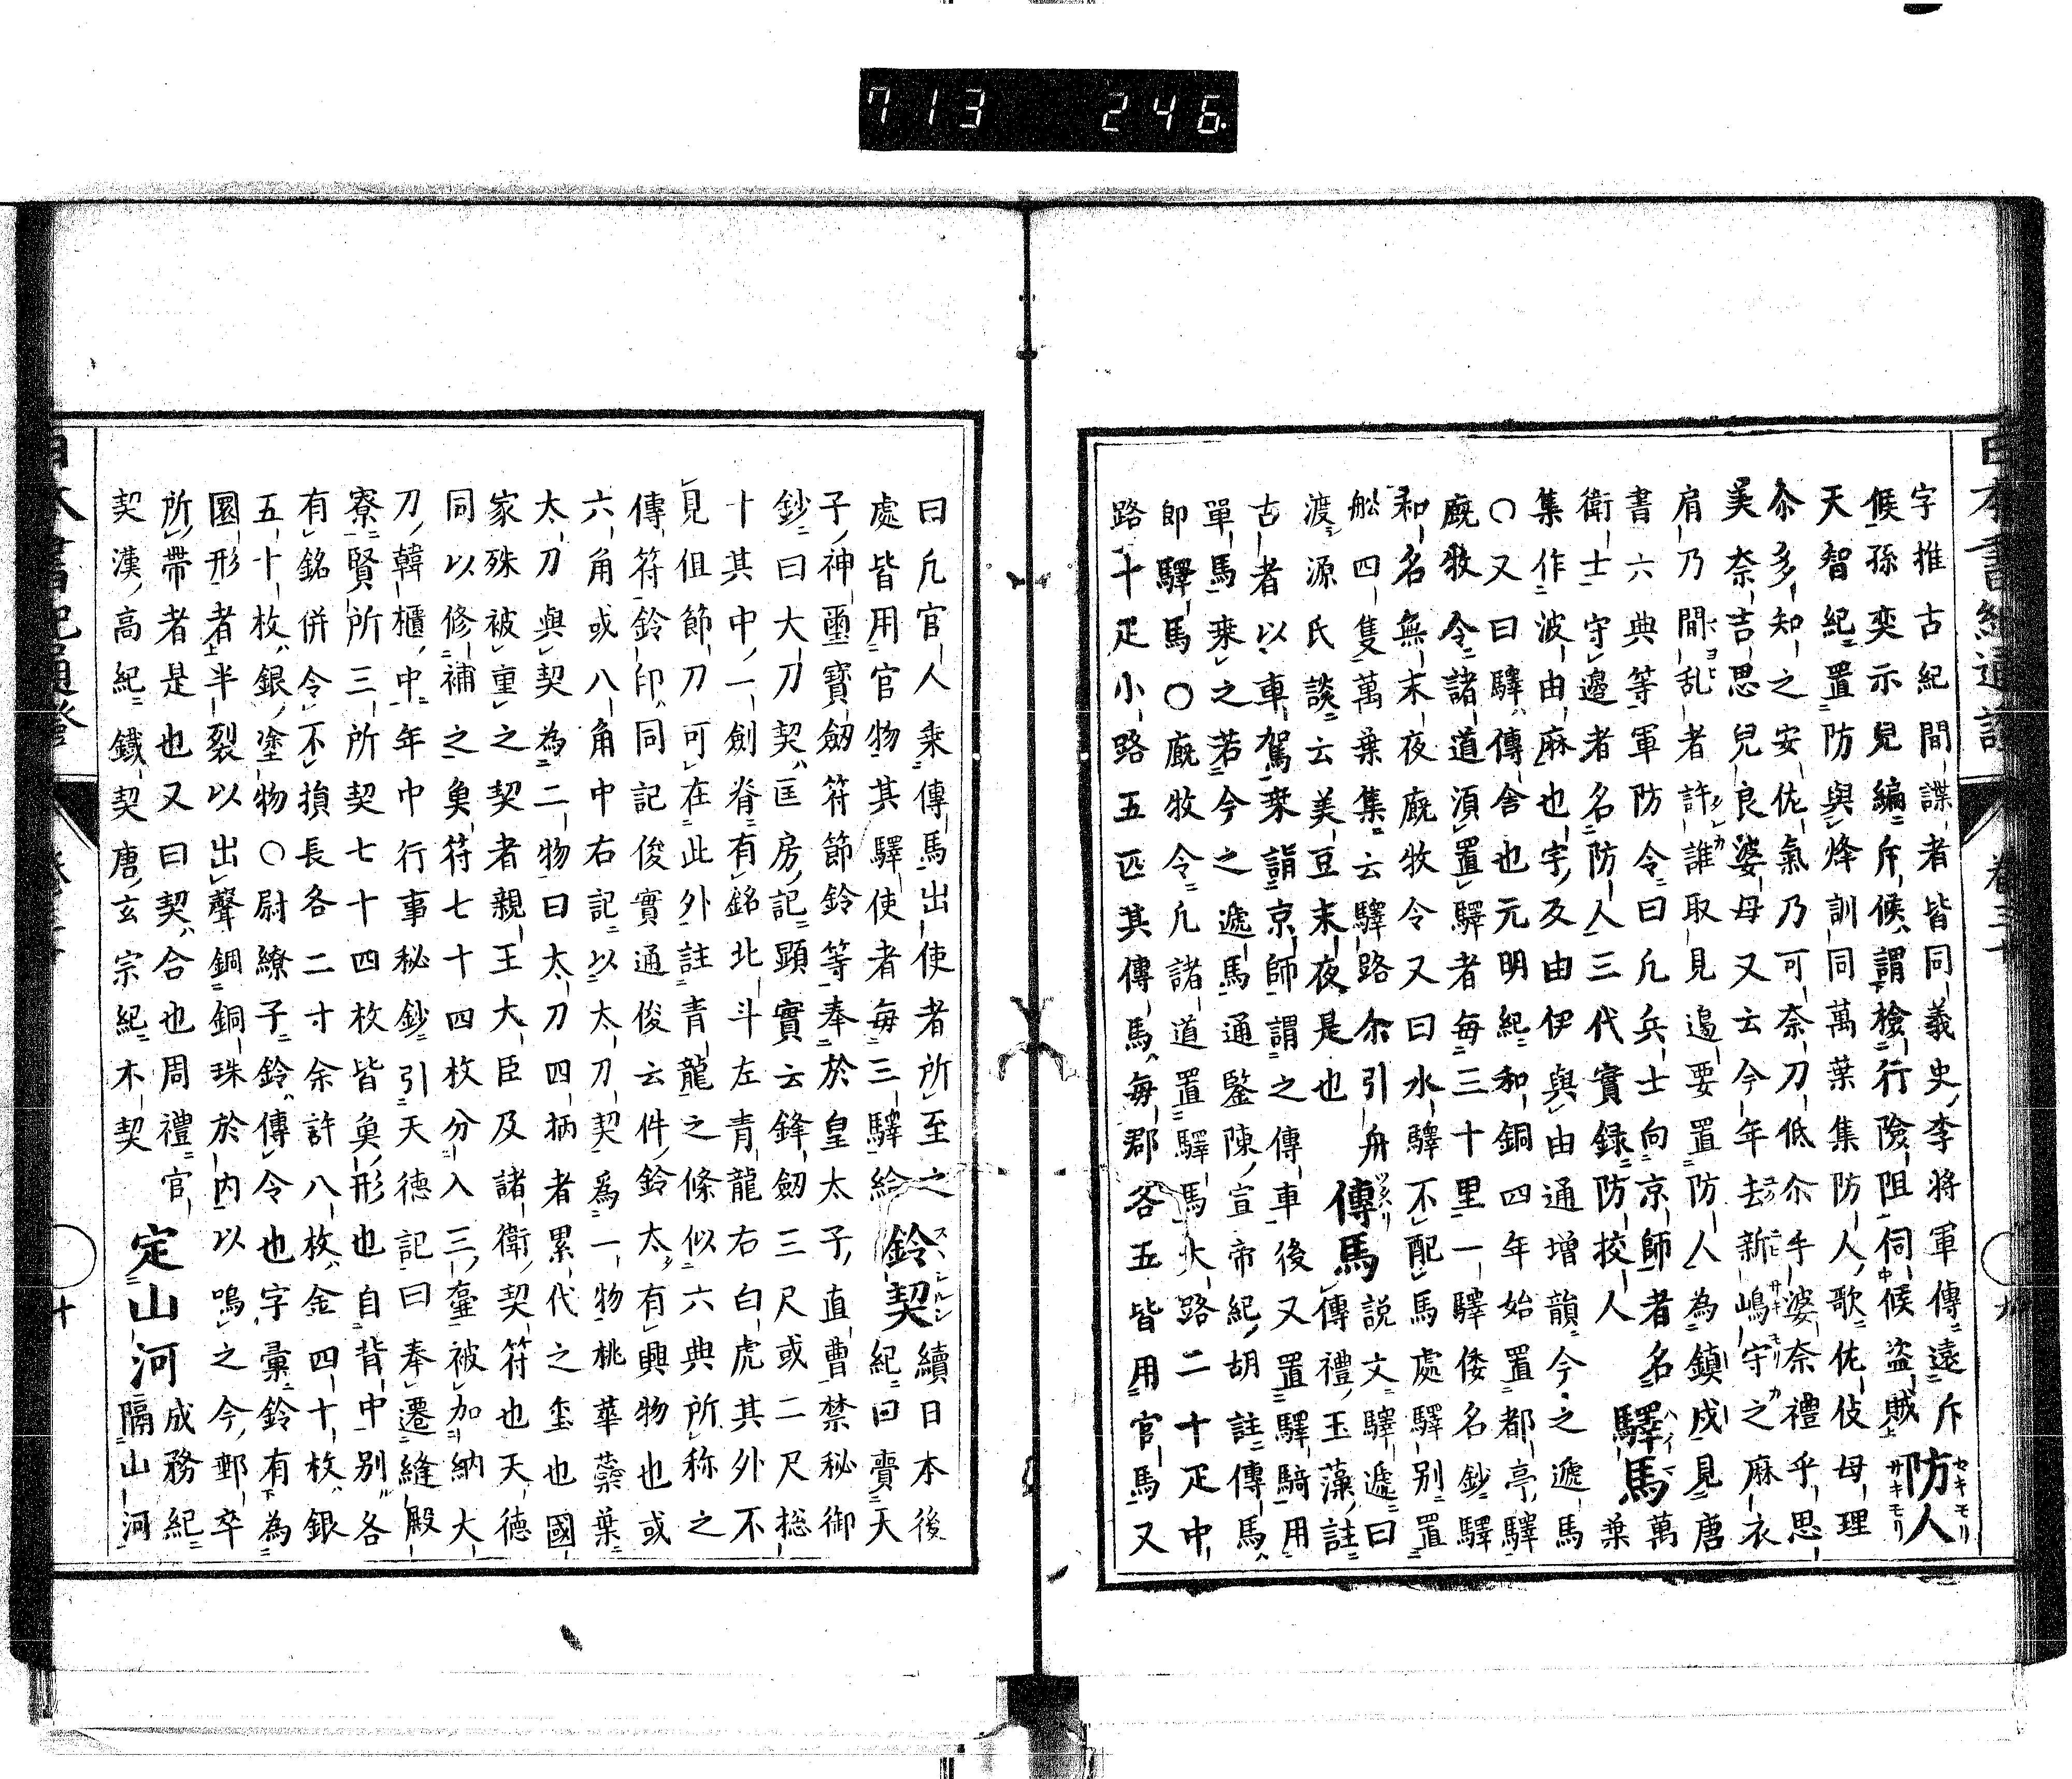 713 246
日本書紀通證
卷三十
九
字推古紀間諜者皆同義史李將軍傳遠斥
候孫奕示兒編斥候謂檢行險阻伺候盜賊防人
天智紀置防與烽訓同萬葉集防人歌佐伎母理
尒多知之安佐氣乃可奈刀低尒手婆奈禮乎思
美奈吉思兒良婆母又云今年去新嶋守之麻衣
肩乃間乱者許誰取見邉要置防人為鎮戍見唐
書六典等軍防令曰凡兵士向京師者名
衛士守邉者名防人三代實録防挍人驛馬萬葉
集作波由麻也字及由伊與由通增韻今之遞馬
○又曰驛傳舎也元明紀和銅四年始置都亭驛
廐牧令諸道須置驛者每三十里一驛倭名鈔驛
和名無末夜廐牧令又曰水驛不配馬處驛別置
舩四隻萬葉集云驛路尒引舟
渡源氏談云美豆末夜是也傳馬傳禮玉藻註
古者以車駕乗詣京師謂之傳車後又置驛騎用
單馬乗之若今之遞馬通鑒陳宣帝紀胡註傳馬
即驛馬○廐牧令凡諸道置驛馬大路二十疋中
路十疋小路五匹其傳馬每郡各五皆用官馬又
曰凡官人乗傳馬出使者所至之
處皆用官物其驛使者每三驛給鈴契續日本後紀曰賷天
子神璽寳劔符節鈴等奉於皇太子直曹禁秘御
鈔曰大刀契匡房記顕實云鋒劔三尺或二尺捴
十其中一劍脊有銘北斗左青龍右白虎其外不
見但節刀可在此外註青龍之條似六典所称之
傳符鈴印同記俊實通俊云件鈴太有興物也或
六角或八角中右記以太刀契為一物桃華蘂葉
太刀與契為二物曰太刀四柄者累代之玺也國
家殊被重之契者親王大臣及諸衛契符也天徳
同以修補之奐符七十四枚分入三臺被加納大
刀韓櫃中年中行事秘鈔引天徳記曰奉遷縫殿
寮賢所三所契七十四枚皆奐形也自背中別各
有銘併令不損長各二寸余許八枚金四十枚銀
五十枚銀塗物○尉繚子鈴傳令也字彙鈴有為
圜形者半裂以出聲銅銅珠於内以鳴之今郵卒
所帶者是也又曰契合也周禮官
契漢高紀鐵契唐玄宗紀木契定山河成務紀隔山河
日本書紀通證
十